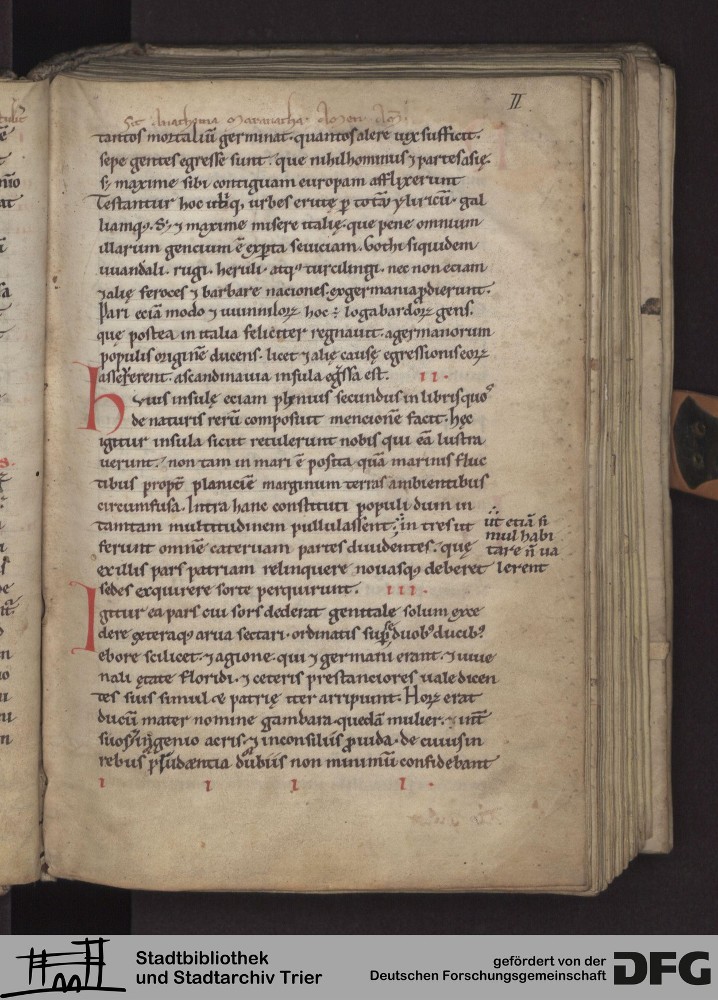 II
Sit Anathema Maranatha. Amen. Am̄.
tantos mortaliū germinat. quantos alere uix sufficit.
sepe gentes egresse sunt. que nihilhominus ⁊ partes asię.
s; maxime sibi contiguam europam afflixerunt
Testantur hoc ubiq; urbes erutę p̄ totā yliricū. gal
liamq;. S; ⁊ maxime misere italię. que pene omnium
illarum gencium ē exp̄ta seuiciam. Gothi siquidem
uuandali. rugi. heruli. atq; turcilingi. nec non eciam
⁊ alię feroces ⁊ barbare naciones. ex germania p̄dierunt.
Pari eciā modo ⁊ uuinniloꝝ hoc ē logabardoꝝ gens.
quę postea in italia feliciter regnauit. a germanorum
populis originē ducens. licet ⁊ alię causę egressionis eoꝝ
asseferent. a scandinauia insula eg̃ssa est. II.
Huius insulę eciam plynius secundus in libris quos
de naturis rerū composuit mencionē facit. hęc
igitur insula sicut retulerunt nobis qui eā lustra
uerunt. non tam in mari ē posita quā marinis fluc
tibus propt̄ planiciē marginum terras ambientibus
circumfusa. Intra hanc constituti populi dum in
tantam multitudinem pullulassent. in tres ut
ut etiā si
mul habi
tare ñ ua
lerent
ferunt omnē cateruam partes diuidentes. quę
ex illis pars patriam relinquere nouasq; deberet
sedes exquirere sorte perquirunt. III.
Igitur ea pars cui sors dederat genitale solum exce
dere exteraq; arua sectari. ordinatis sup̄ se duob; ducib;
ebore scilicet. ⁊ agione. qui ⁊ germani erant. ⁊ iuue
nali ętate floridi. ⁊ ceteris prestanciores uale dicen
tes suis simul & patrię iter arripiunt. Hoꝝ erat
ducū mater nomine gambara. quedā mulier. ⁊ int̄
suos ingenio acris. ⁊ in consiliis p̄uida. de cuius in
rebus dubiis non minimū confidebant
I I I I.
Stadtbibliothek
und Stadtarchiv Trier
gefördert von der
Deutschen Forschungsgemeinschaft
DFG